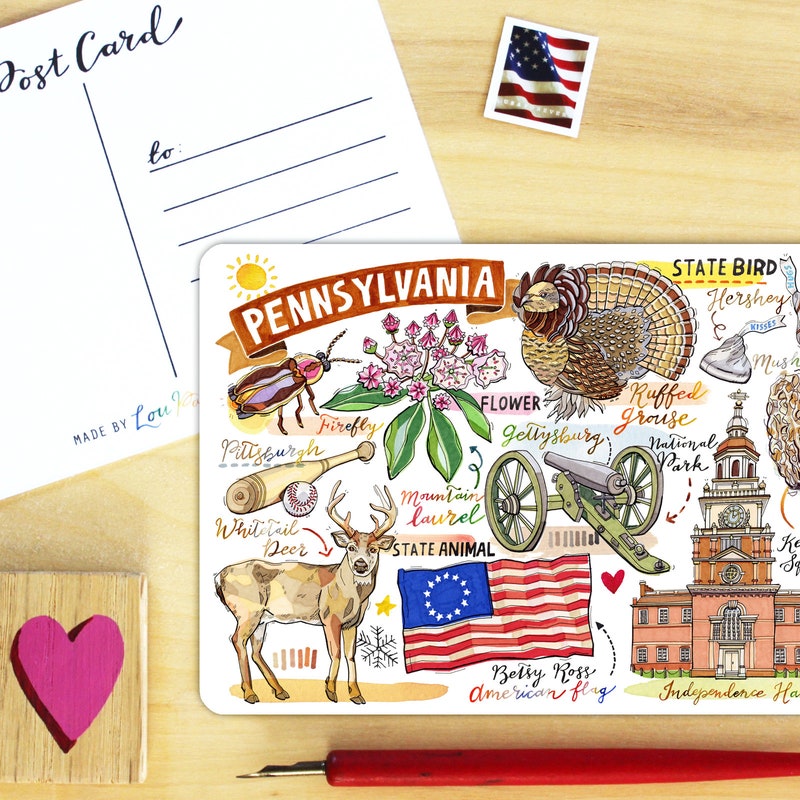 Post Card
to:
MADE BY Lou
PENNSYLVANIA
STATE BIRD
Hershey
KISSES
HUGS
Firefly
FLOWER
Ruffed
grouse
Pittsburgh
Gettysburg
National
Park
Mountain
laurel
Whitetail
Deer
STATE ANIMAL
Betsy Ross
american flag
Independence